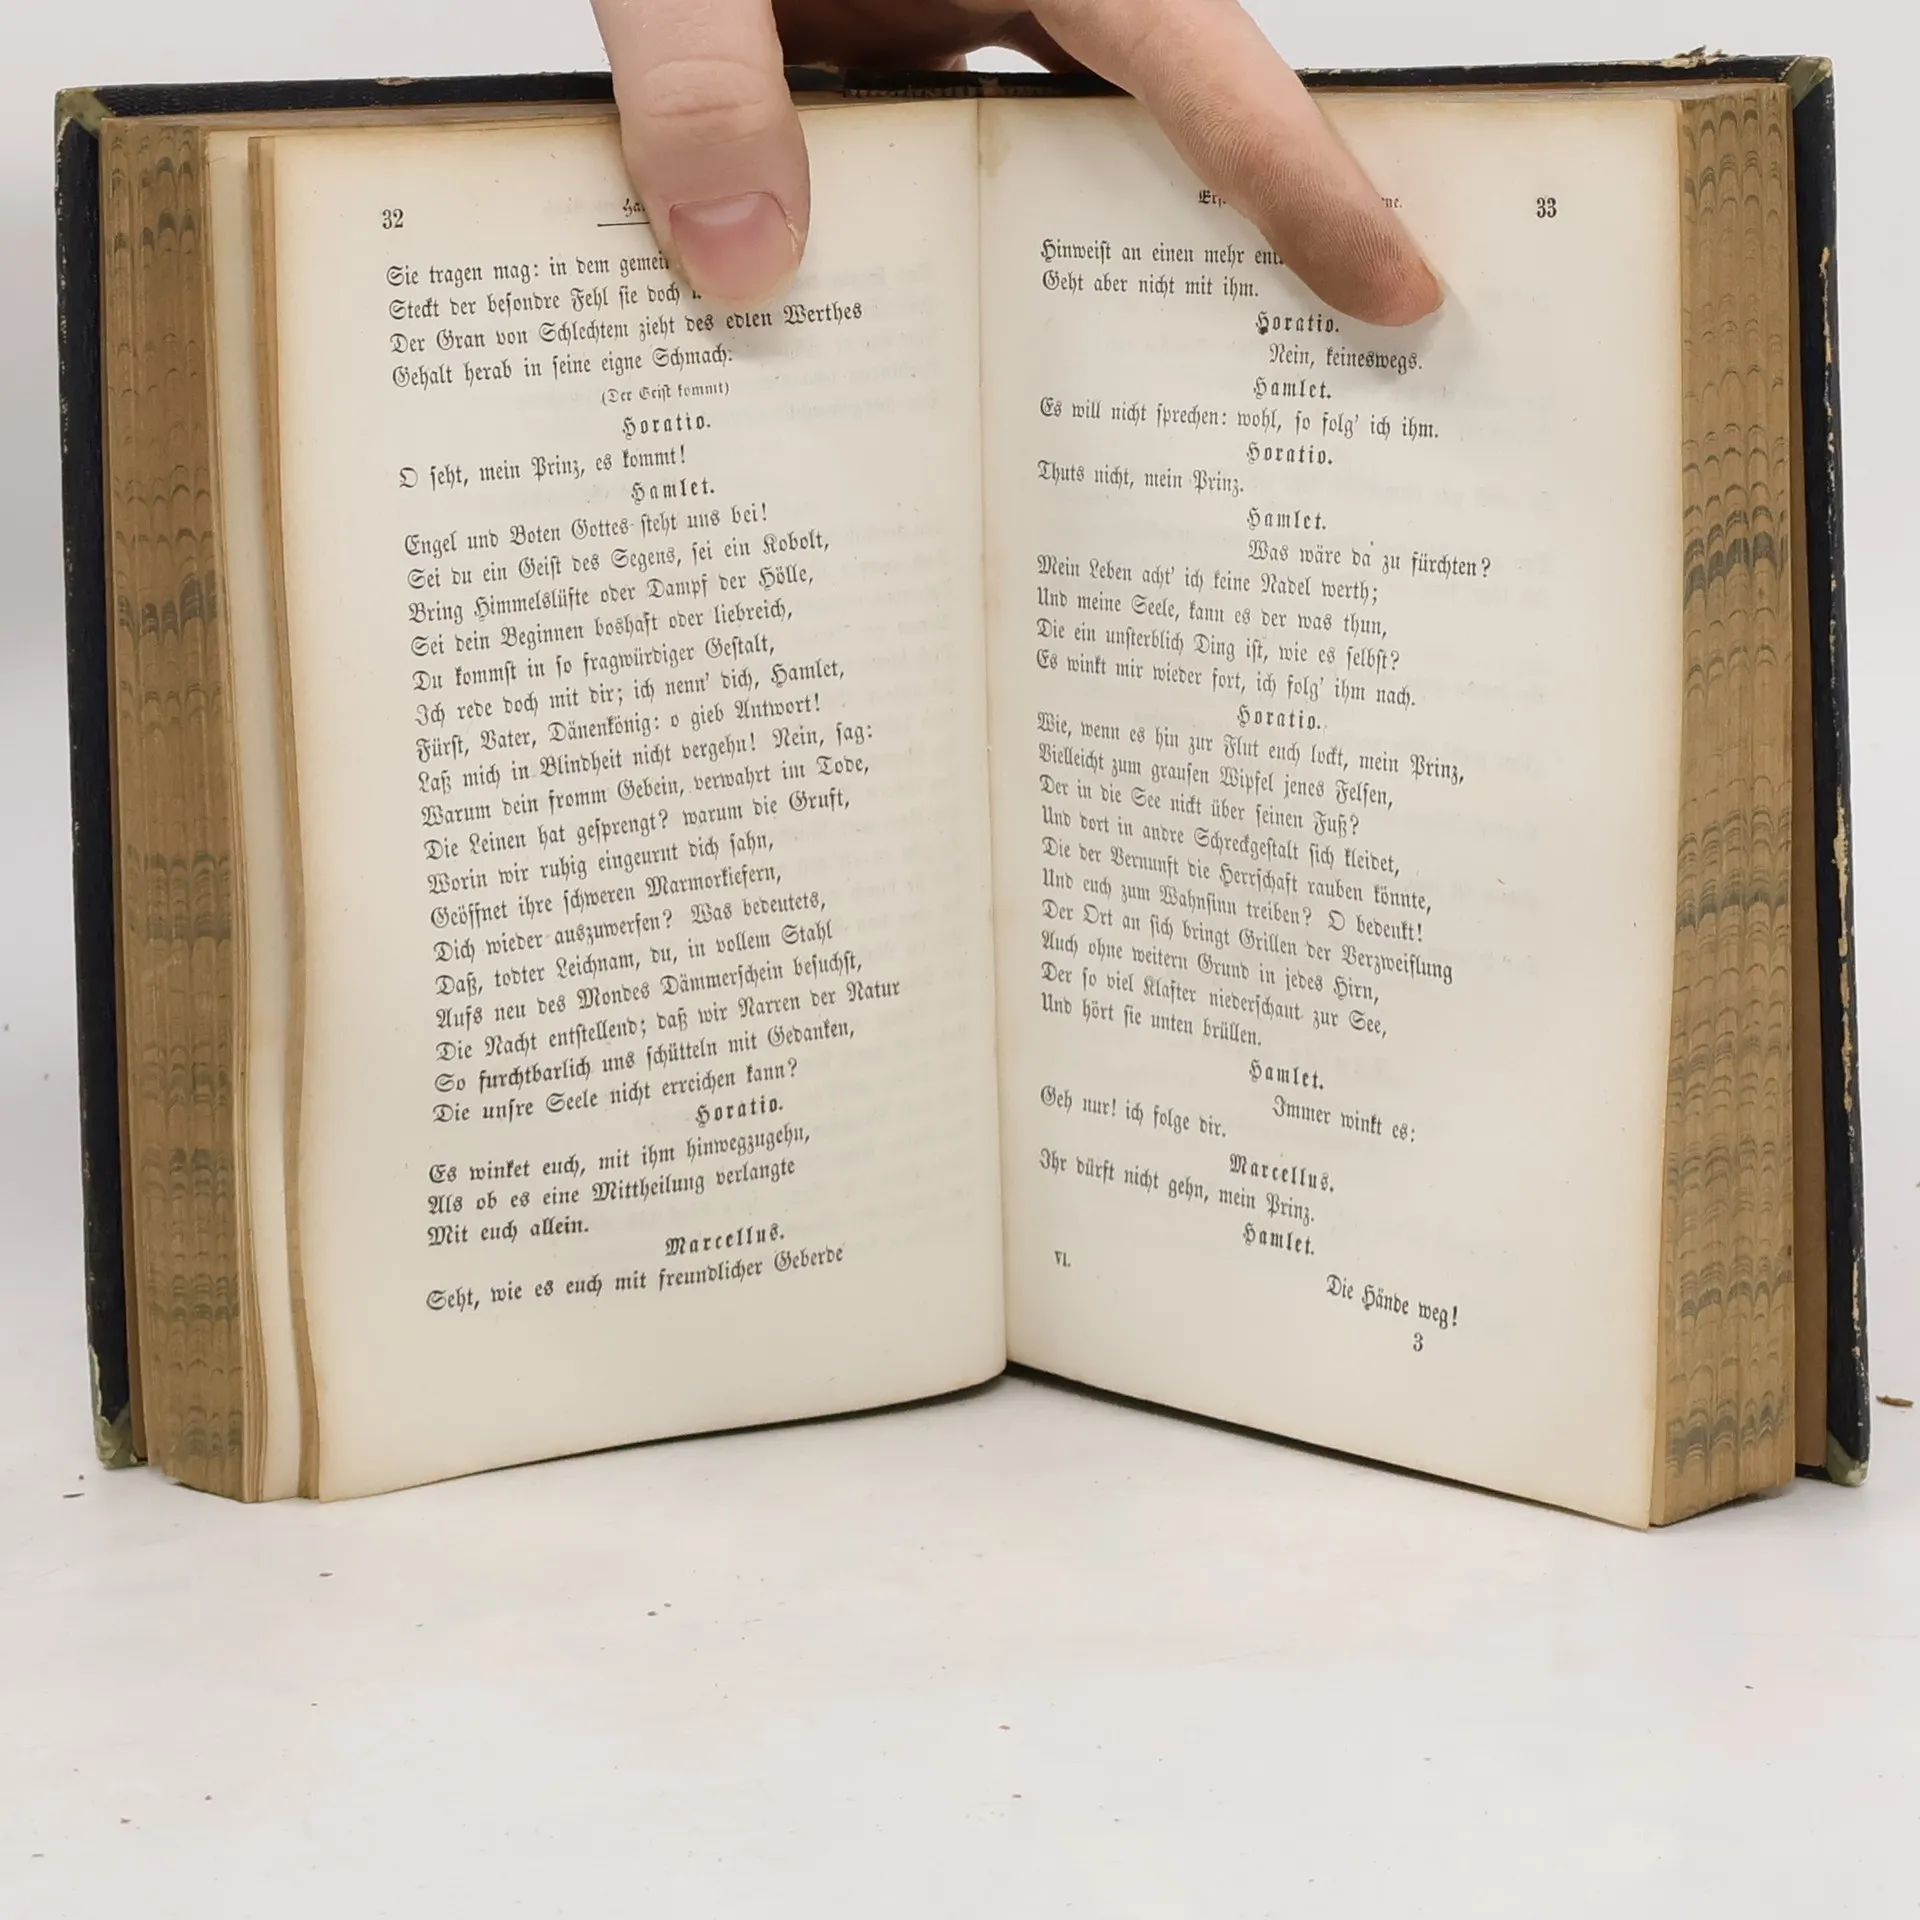 32
Sie tragen mag: in dem
Steckt der besondre Fehl sie doch
Der Gran von Schlechtem zieht des edlen Werthes
Gehalt herab in seine eigne Schmach:
(Der Geist kommt)
Horatio.
O seht, mein Prinz, es kommt!
Hamlet.
Engel und Boten Gottes steht uns bei!
Sei du ein Geist des Segens, sei ein Kobolt,
Bring Himmelslüfte oder Dampf der Hölle,
Sei dein Beginnen boshaft oder liebreich,
Du kommst in so fragwürdiger Gestalt,
Ich rede doch mit dir; ich nenn' dich, Hamlet,
Fürst, Vater, Dänenkönig: o gieb Antwort!
Laß mich in Blindheit nicht vergehn! Nein, sag:
Warum dein fromm Gebein, verwahrt im Tode,
Die Leinen hat gesprengt? warum die Gruft,
Worin wir ruhig eingeurnt dich sahn,
Geöffnet ihre schweren Marmorkiefern,
Dich wieder auszuwerfen? Was bedeutets,
Daß, todter Leichnam, du, in vollem Stahl
Aufs neu des Mondes Dämmerschein besuchst,
Die Nacht entstellend; daß wir Narren der Natur
So furchtbarlich uns schütteln mit Gedanken,
Die unsre Seele nicht erreichen kann?
Horatio.
Es winket euch, mit ihm hinwegzugehn,
Als ob es eine Mittheilung verlangte
Mit euch allein.
Marcellus.
Seht, wie es euch mit freundlicher Geberde
33
Hinweist an einen mehr
Geht aber nicht mit ihm.
Horatio.
Nein, keineswegs.
Hamlet.
Es will nicht sprechen: wohl, so folg' ich ihm.
Horatio.
Thuts nicht, mein Prinz.
Hamlet.
Was wäre da zu fürchten?
Mein Leben acht' ich keine Nadel werth;
Und meine Seele, kann es der was thun,
Die ein unsterblich Ding ist, wie es selbst?
Es winkt mir wieder fort, ich folg' ihm nach.
Horatio.
Wie, wenn es hin zur Flut euch lockt, mein Prinz,
Vielleicht zum grausen Wipfel jenes Felsen,
Der in die See nickt über seinen Fuß?
Und dort in andre Schreckgestalt sich kleidet,
Die der Vernunft die Herrschaft rauben könnte,
Und euch zum Wahnsinn treiben? O bedenkt!
Der Ort an sich bringt Grillen der Verzweiflung
Auch ohne weitern Grund in jedes Hirn,
Der so viel Klafter niederschaut zur See,
Und hört sie unten brüllen.
Hamlet.
Immer winkt es:
Geh nur! ich folge dir.
Marcellus.
Ihr dürft nicht gehn, mein Prinz.
Hamlet.
Die Hände weg!
VI.
3